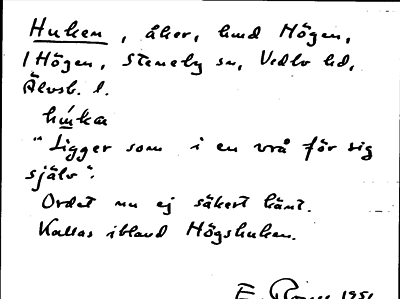 Huken, åker, hmd Högen,
1 Högen, Steneby sn, Vedbo hd,
Älvsb. l.
hú̄ka
"Ligger som i en vrå för sig
själv".
Ordet nu ej säkert känt.
Kallas ibland Högshuken.
E. 1951